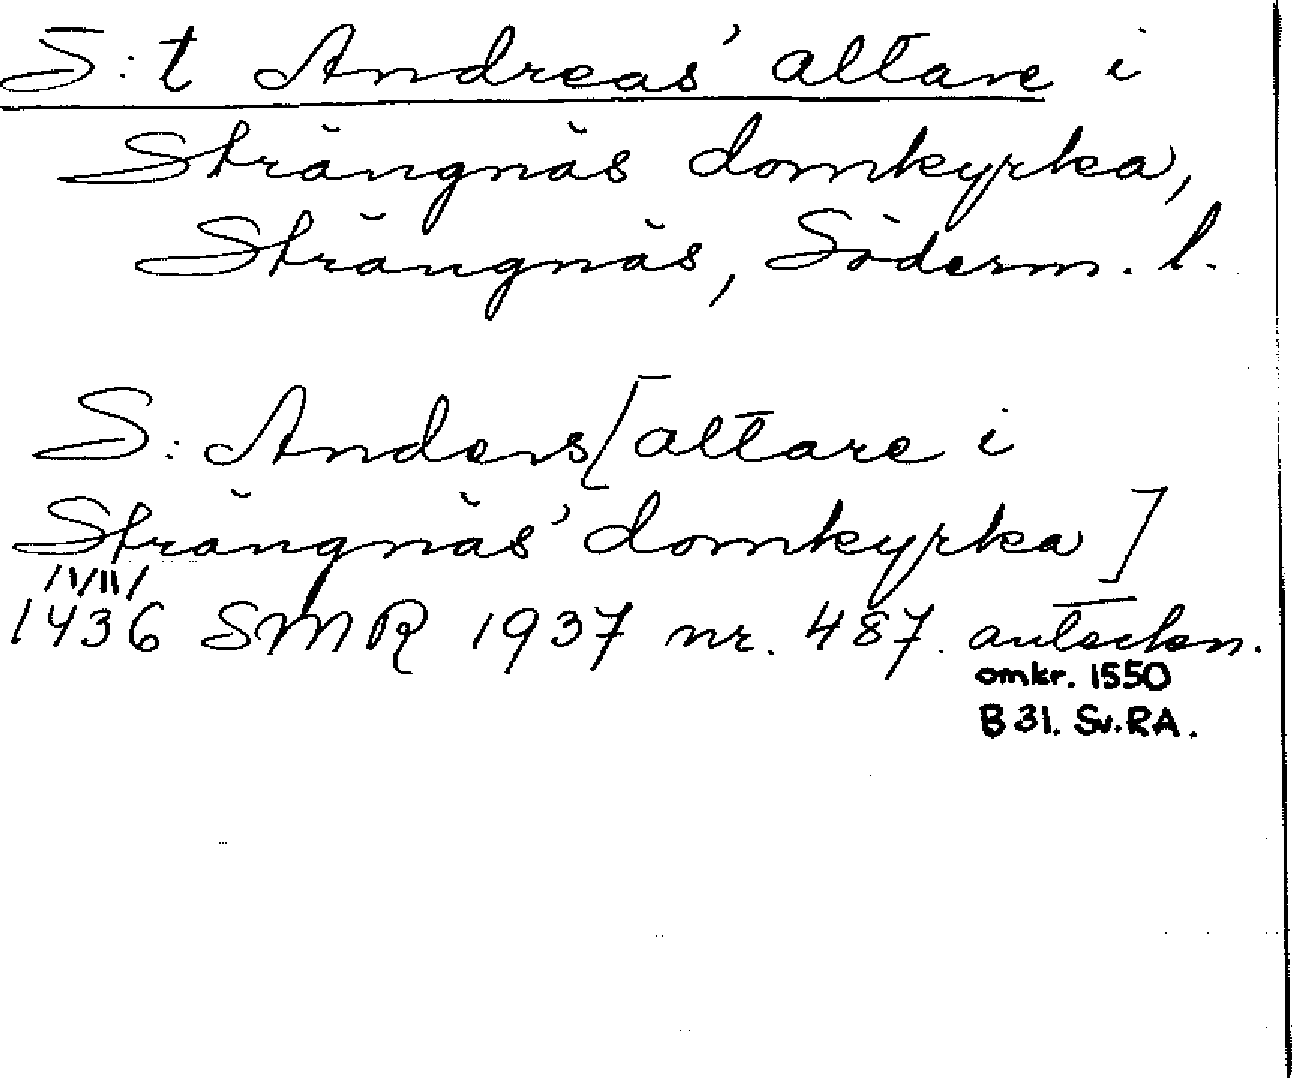 S:t Andreas' altare i
Strängnäs domkyrka,
Strängnäs, Söderm. l.
S: Anders [altare i
Strängnäs' domkyrka]
1436 SMR 1937 nr. 487. anteckn.
omkr. 1550
B 31. Sv.RA.